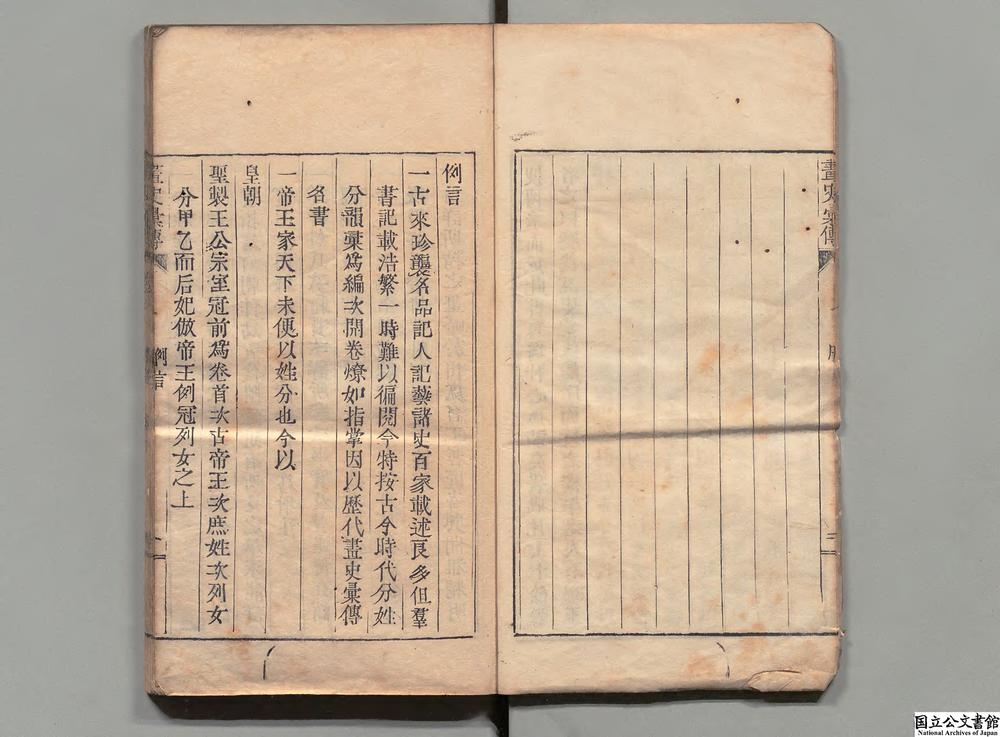 畫史彙傳
三
例言
一古來珍襲名品記人記藝諸史百家載述良多但羣
書記載浩繁一時難以徧閱今特按古今時代分姓
分韻彙爲編次開卷燎如指掌因以歷代畫史彙傳
名書
一帝王家天下未便以姓分也今以
皇朝
聖製王公宗室冠前爲卷首次古帝王次庶姓次列女
分甲乙而后妃倣帝王例冠列女之上
畫史彙傳
例言
一
国立公文書館
National Archives of Japan